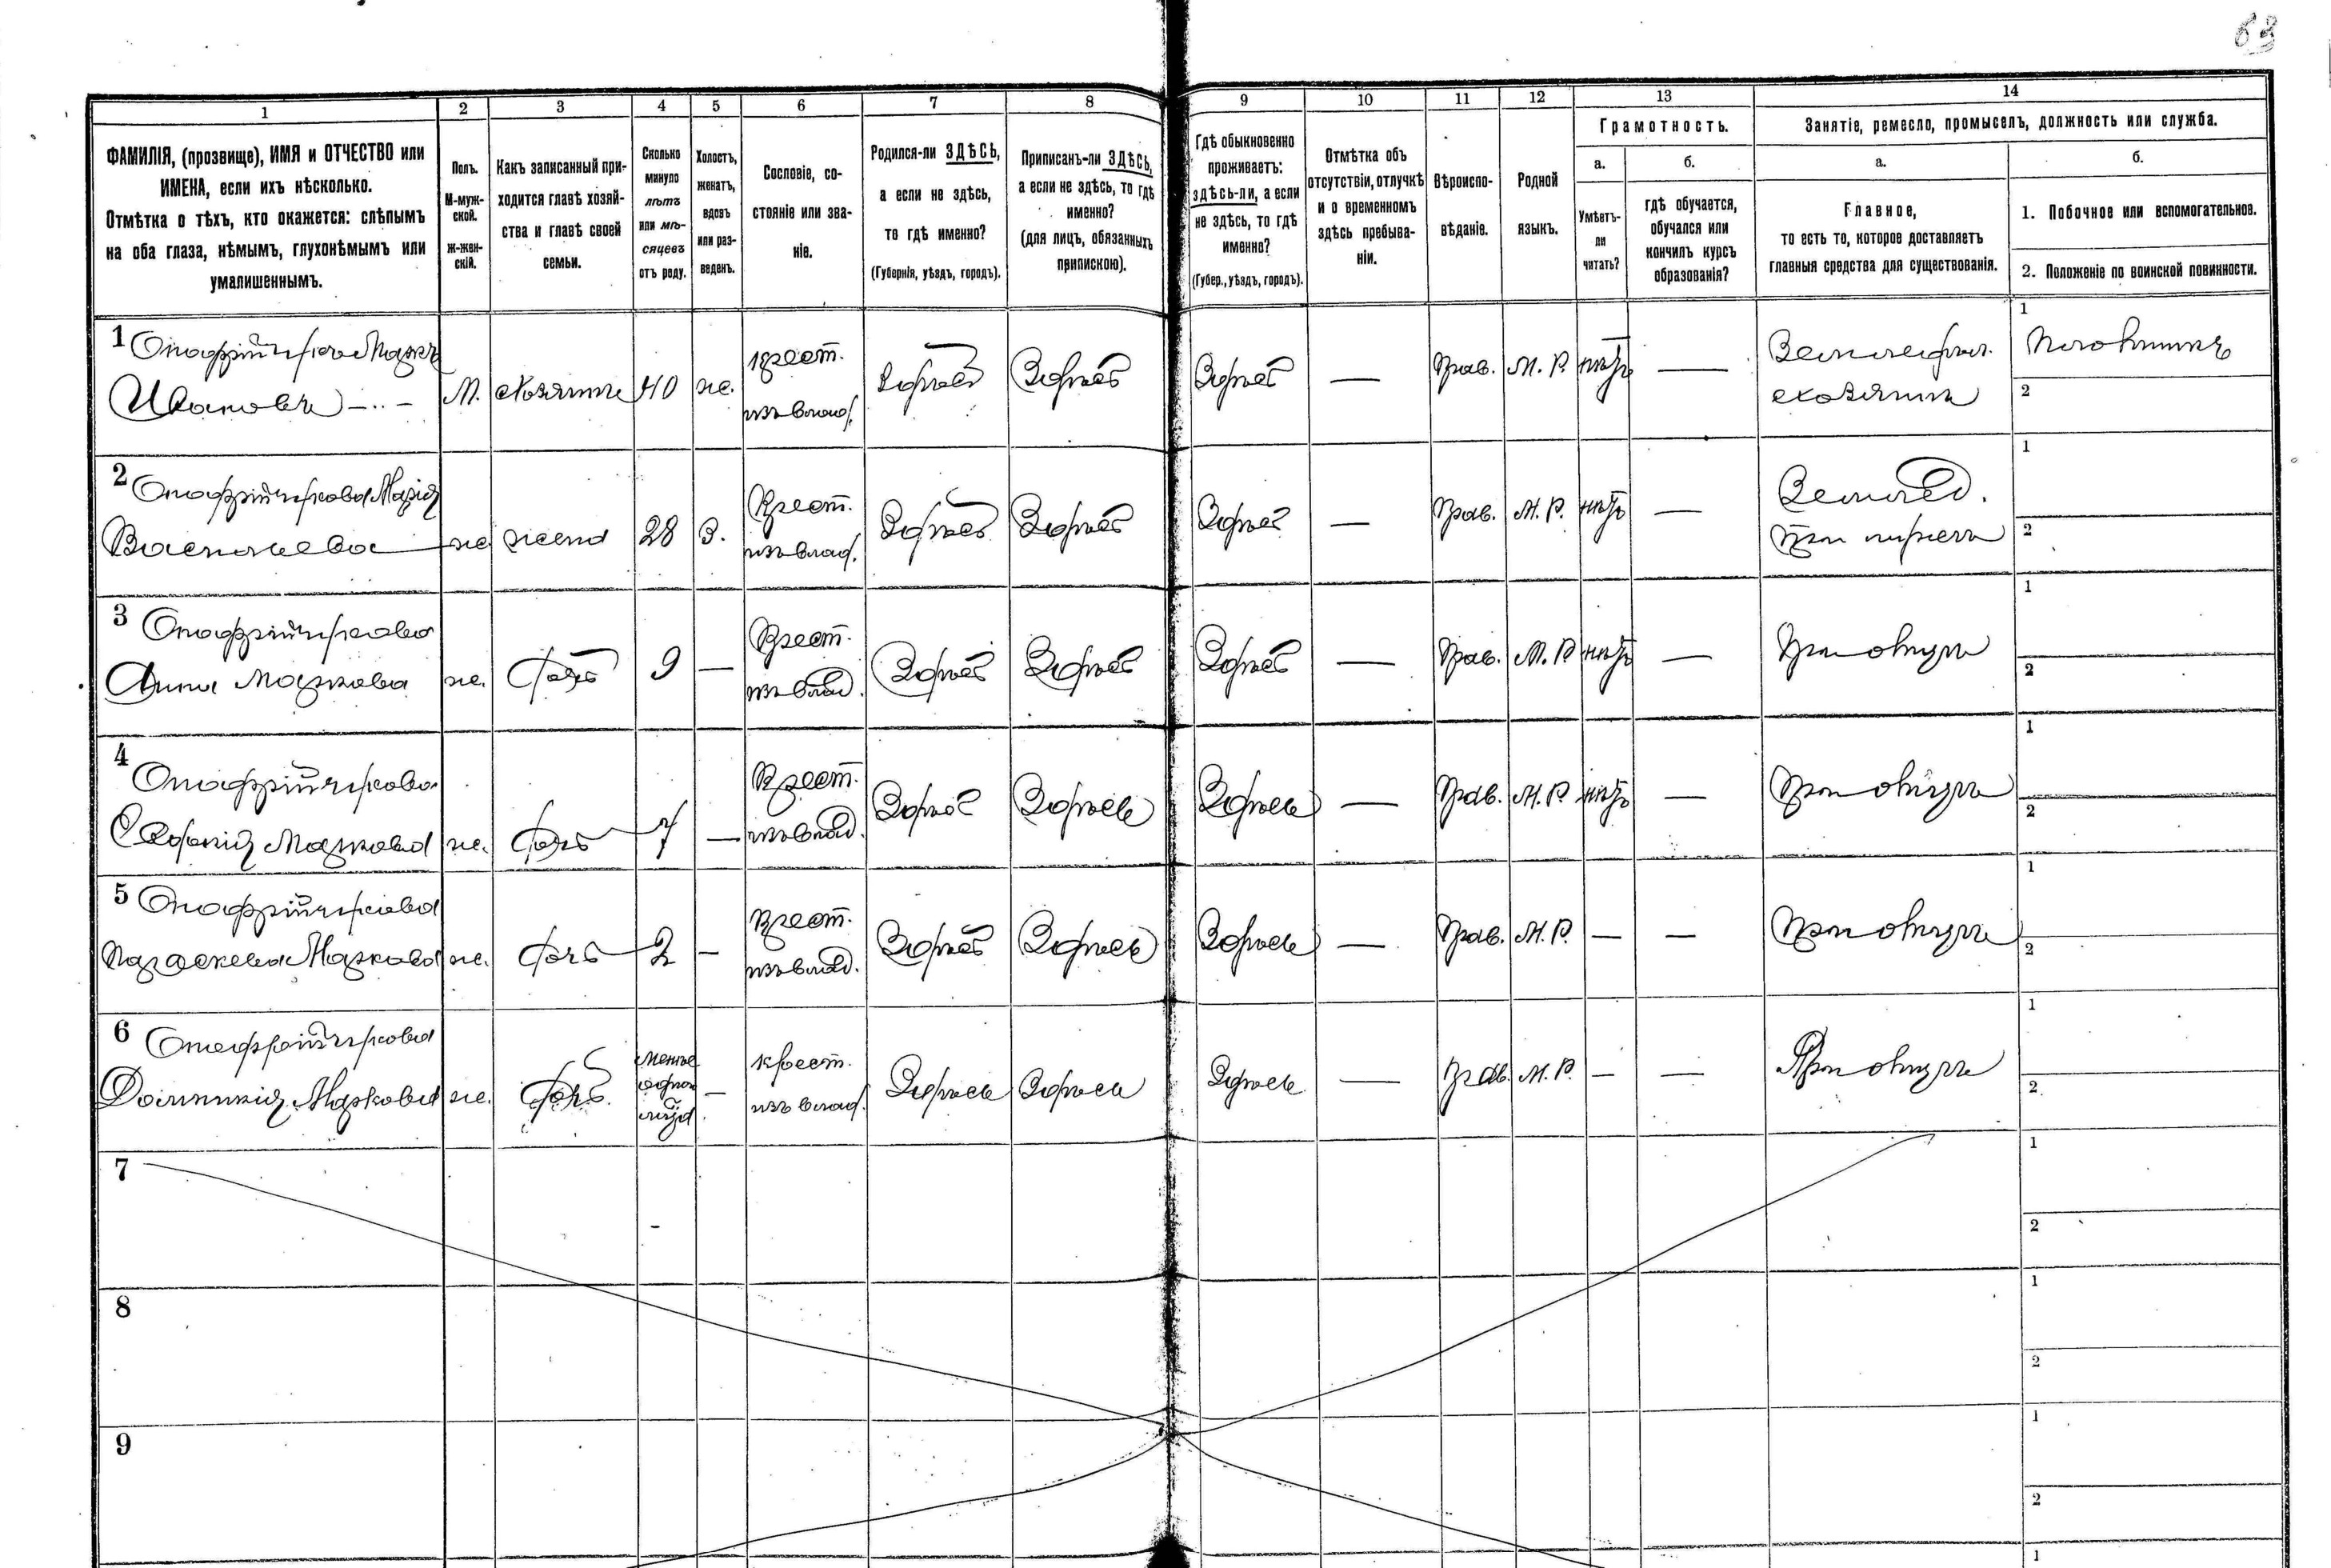 63
1
2
3
4
5
6
7
8
9
10
11
12
13
14
ФАМИЛІЯ, (прозвище), ИМЯ и ОТЧЕСТВО или
ИМЕНА, если ихъ нѣсколько.
Отмѣтка о тѣхъ, кто окажется: слѣпымъ
на оба глаза, нѣмымъ, глухонѣмымъ или
умалишеннымъ.
Полъ.
М-муж-
ской.
ж-жен-
скій.
Какъ записанный при-
ходится главѣ хозяй-
ства и главѣ своей
семьи.
Сколько
минуло
лѣтъ
или мѣ-
сяцевъ
отъ роду.
Холостъ,
женатъ,
вдовъ
или раз-
веденъ.
Сословіе, со-
стояніе или зва-
ніе.
Родился-ли ЗДѢСЬ,
а если не здѣсь,
то гдѣ именно?
(Губернія, уѣздъ, городъ).
Приписанъ-ли ЗДѢСЬ,
а если не здѣсь, то гдѣ
именно?
(для лицъ, обязанныхъ
припискою).
Гдѣ обыкновенно
проживаетъ:
здѣсь-ли, а если
не здѣсь, то гдѣ
именно?
(Губер., уѣздъ, городъ).
Отмѣтка объ
отсутствіи, отлучкѣ
и о временномъ
здѣсь пребыва-
ніи.
Вѣроиспо-
вѣданіе.
Родной
языкъ.
Грамотность.
а.
Умѣетъ-
ли
читать?
б.
гдѣ обучается,
обучался или
кончилъ курсъ
образованія?
Занятіе, ремесло, промыселъ, должность или служба.
а.
Главное,
то есть то, которое доставляетъ
главныя средства для существованія.
б.
1. Побочное или вспомогательное.
2. Положеніе по воинской повинности.
1 Маркъ
Ивановъ
М. хозяинъ 40 ж.
крест.
изъ влад.
Здѣсь Здѣсь Здѣсь — Прав. М. Р. нѣтъ —
Земледѣл.
хозяинъ
1
2
2 Марія
Васильева ж жена 28 З.
Крест.
изъ влад.
Здѣсь Здѣсь Здѣсь — Прав. М. Р. нѣтъ —
Землед.
при мужѣ
1
2
3
Анна Маркова ж. дочь 9 —
Крест.
изъ влад.
Здѣсь Здѣсь Здѣсь — Прав. М. Р. нѣтъ —
При отцѣ
1
2
4
Маркова ж. дочь 7 —
Крест.
изъ влад.
Здѣсь Здѣсь Здѣсь — Прав. М. Р. нѣтъ —
При отцѣ
1
2
5
Параскева Маркова ж. дочь 2 —
Крест.
изъ влад.
Здѣсь Здѣсь Здѣсь — Прав. М. Р. — —
При отцѣ
1
2
6
Маркова ж. дочь
менѣе
одного
—
крест.
изъ влад.
Здѣсь Здѣсь Здѣсь — Прав. М. Р. — —
При отцѣ
1
2
7
1
2
8
1
2
9
1
2
1